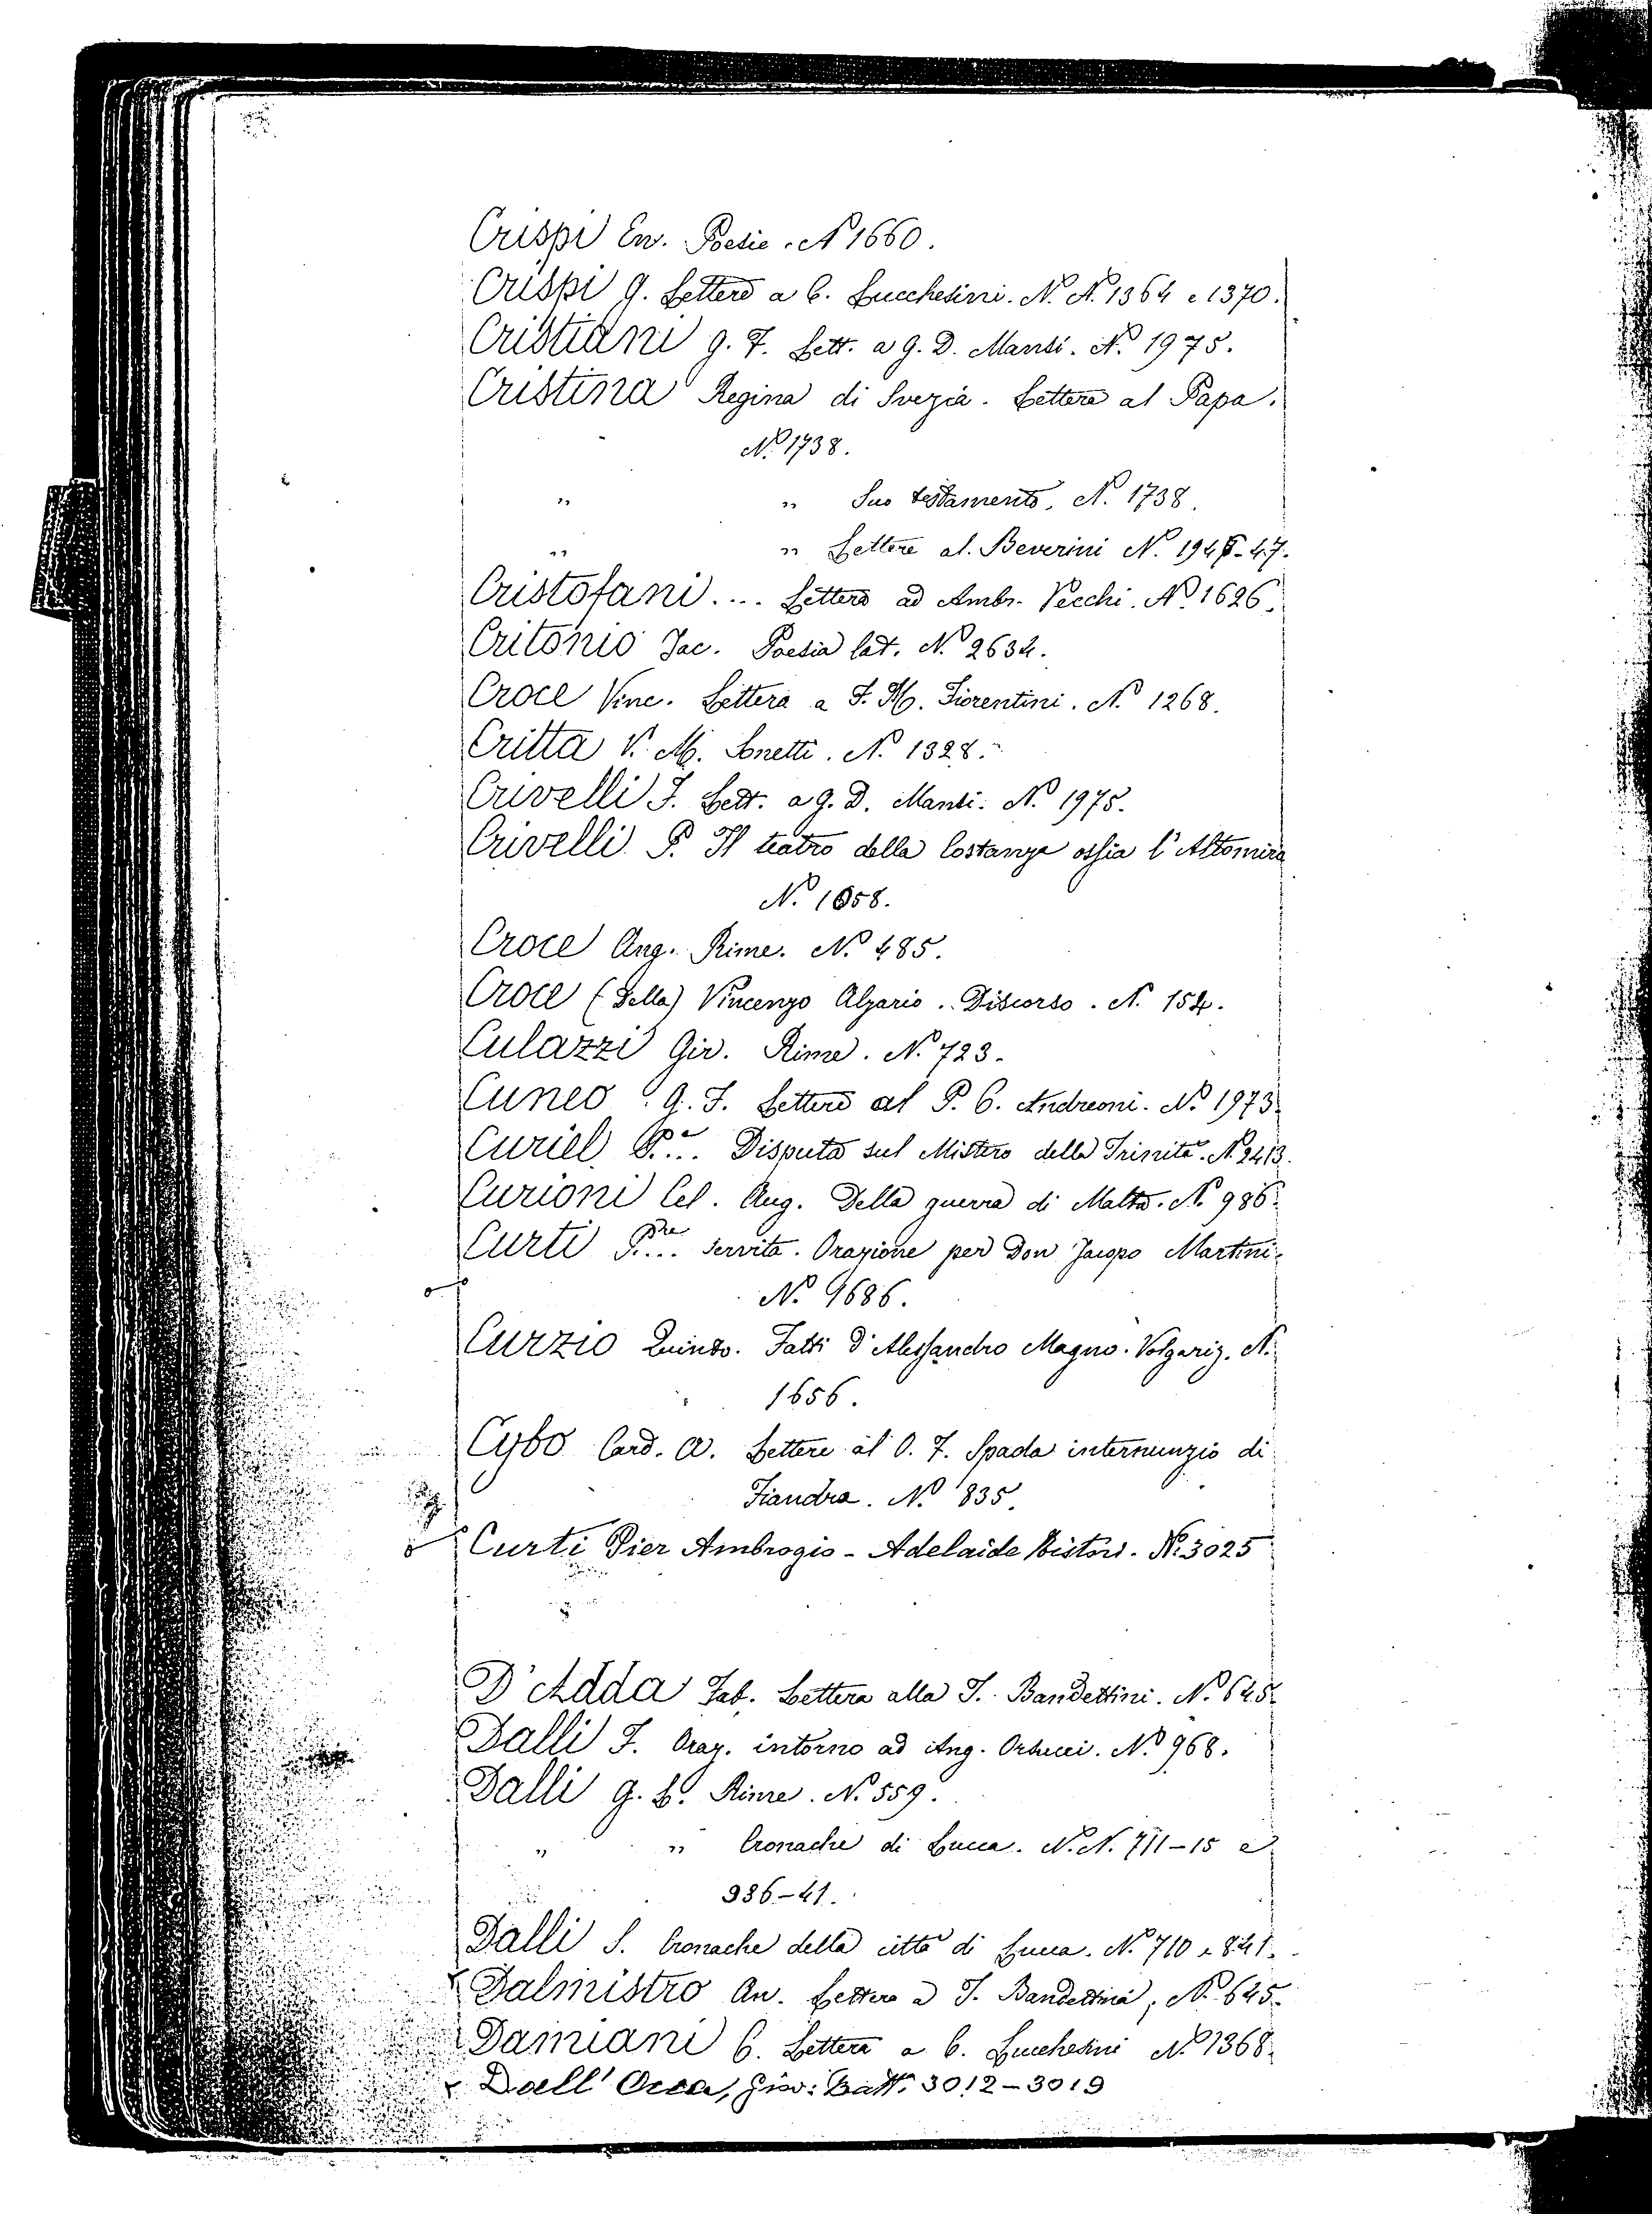 Crispi En. Poesie. N. 1660.
Crispi G. Lettere a C. Lucchesini. N. N. 1364 e 1370.
Cristiani G. F. Lett. a G. D. Mansi. N. 1975.
Cristina Regina di Svezia. Lettera al Papa.
N. 1738.
" " Suo testamento. N. 1738.
" " Lettere al Beverini N. 1946-47.
Cristofani.... Lettera ad Ambr. Vecchi. N. 1626.
Critonio Jac. Poesia lat. N. 2634.
Croce Vinc. Lettera a F. M. Fiorentini. N. 1268.
Critta V. M. Sonetti. N. 1328.
Crivelli F. Lett. a G. D. Mansi. N. 1975.
Crivelli P. Il teatro della Costanza ossia l'Altomira
N. 1658.
Croce Ang. Rime. N. 485.
Croce (Della) Vincenzo Alzario. Discorso. N. 154.
Culazzi Gir. Rime. N. 723.
Cuneo G. F. Lettere al P. C. Andreoni. N. 1973.
Curiel P.e... Disputa sul Mistero della Trinità. N. 2413.
Curioni Cel. Aug. Della guerra di Malta. N. 986.
Curti P.re... Servita. Orazione per Don Jacopo Martini.
N. 1686.
Curzio Quinto. Fatti d'Alessandro Magno. Volgariz. N.
1656.
Cybo Card. A. Lettere al O. F. Spada internunzio di
Fiandra. N. 835.
Curti Pier Ambrogio - Adelaide Ristori. N. 3025
D'Adda Fab. Lettera alla T. Bandettini. N. 645.
Dalli F. Oraz. intorno ad Ang. Orlucci. N. 968.
Dalli G. B. Rime. N. 559.
" " Cronache di Lucca. N. N. 711-15 e
936-41.
Dalli S. Cronache della città di Lucca. N. 710 e 841.
Dalmistro An. Lettera a T. Bandettini, N. 645.
Damiani C. Lettera a C. Lucchesini N. 1368.
Dall'Orca, Giov: Batt. 3012-3019